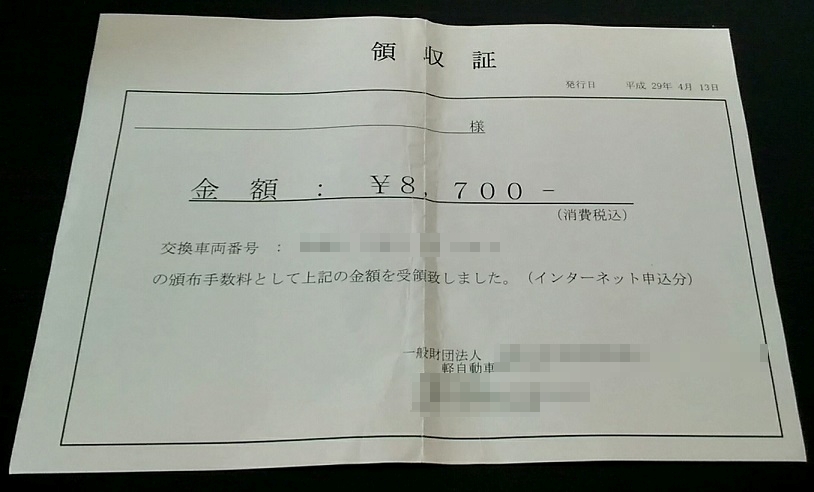 領収証
発行日 平成 29年 4月 13日
様
金額 : ¥8,700-
(消費税込)
交換車両番号 :
の頒布手数料として上記の金額を受領致しました。(インターネット申込分)
一般財団法人
軽自動車